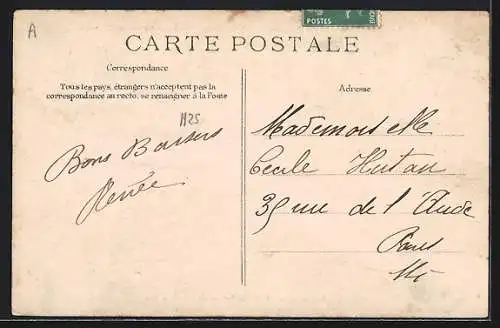 A
POSTES
CARTE POSTALE
Correspondance
Tous les pays étrangers n'acceptent pas la
correspondance au recto, se renseigner à la Poste
1125
Bons Baisers
Renée
Adresse
Mademoiselle
Cecile
35 rue de l'Aude
Paris